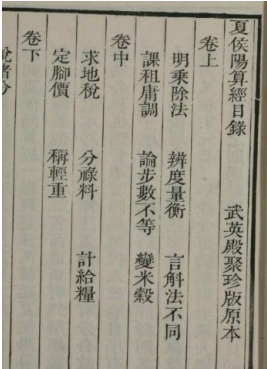 夏侯陽算經目錄 武英殿聚珍版原本
卷上
明乘除法 辨度量衡 言斛法不同
課租庸調 論步數不等 變米穀
卷中
求地稅 分祿料 計給糧
定腳價 稱輕重
卷下
說諸分